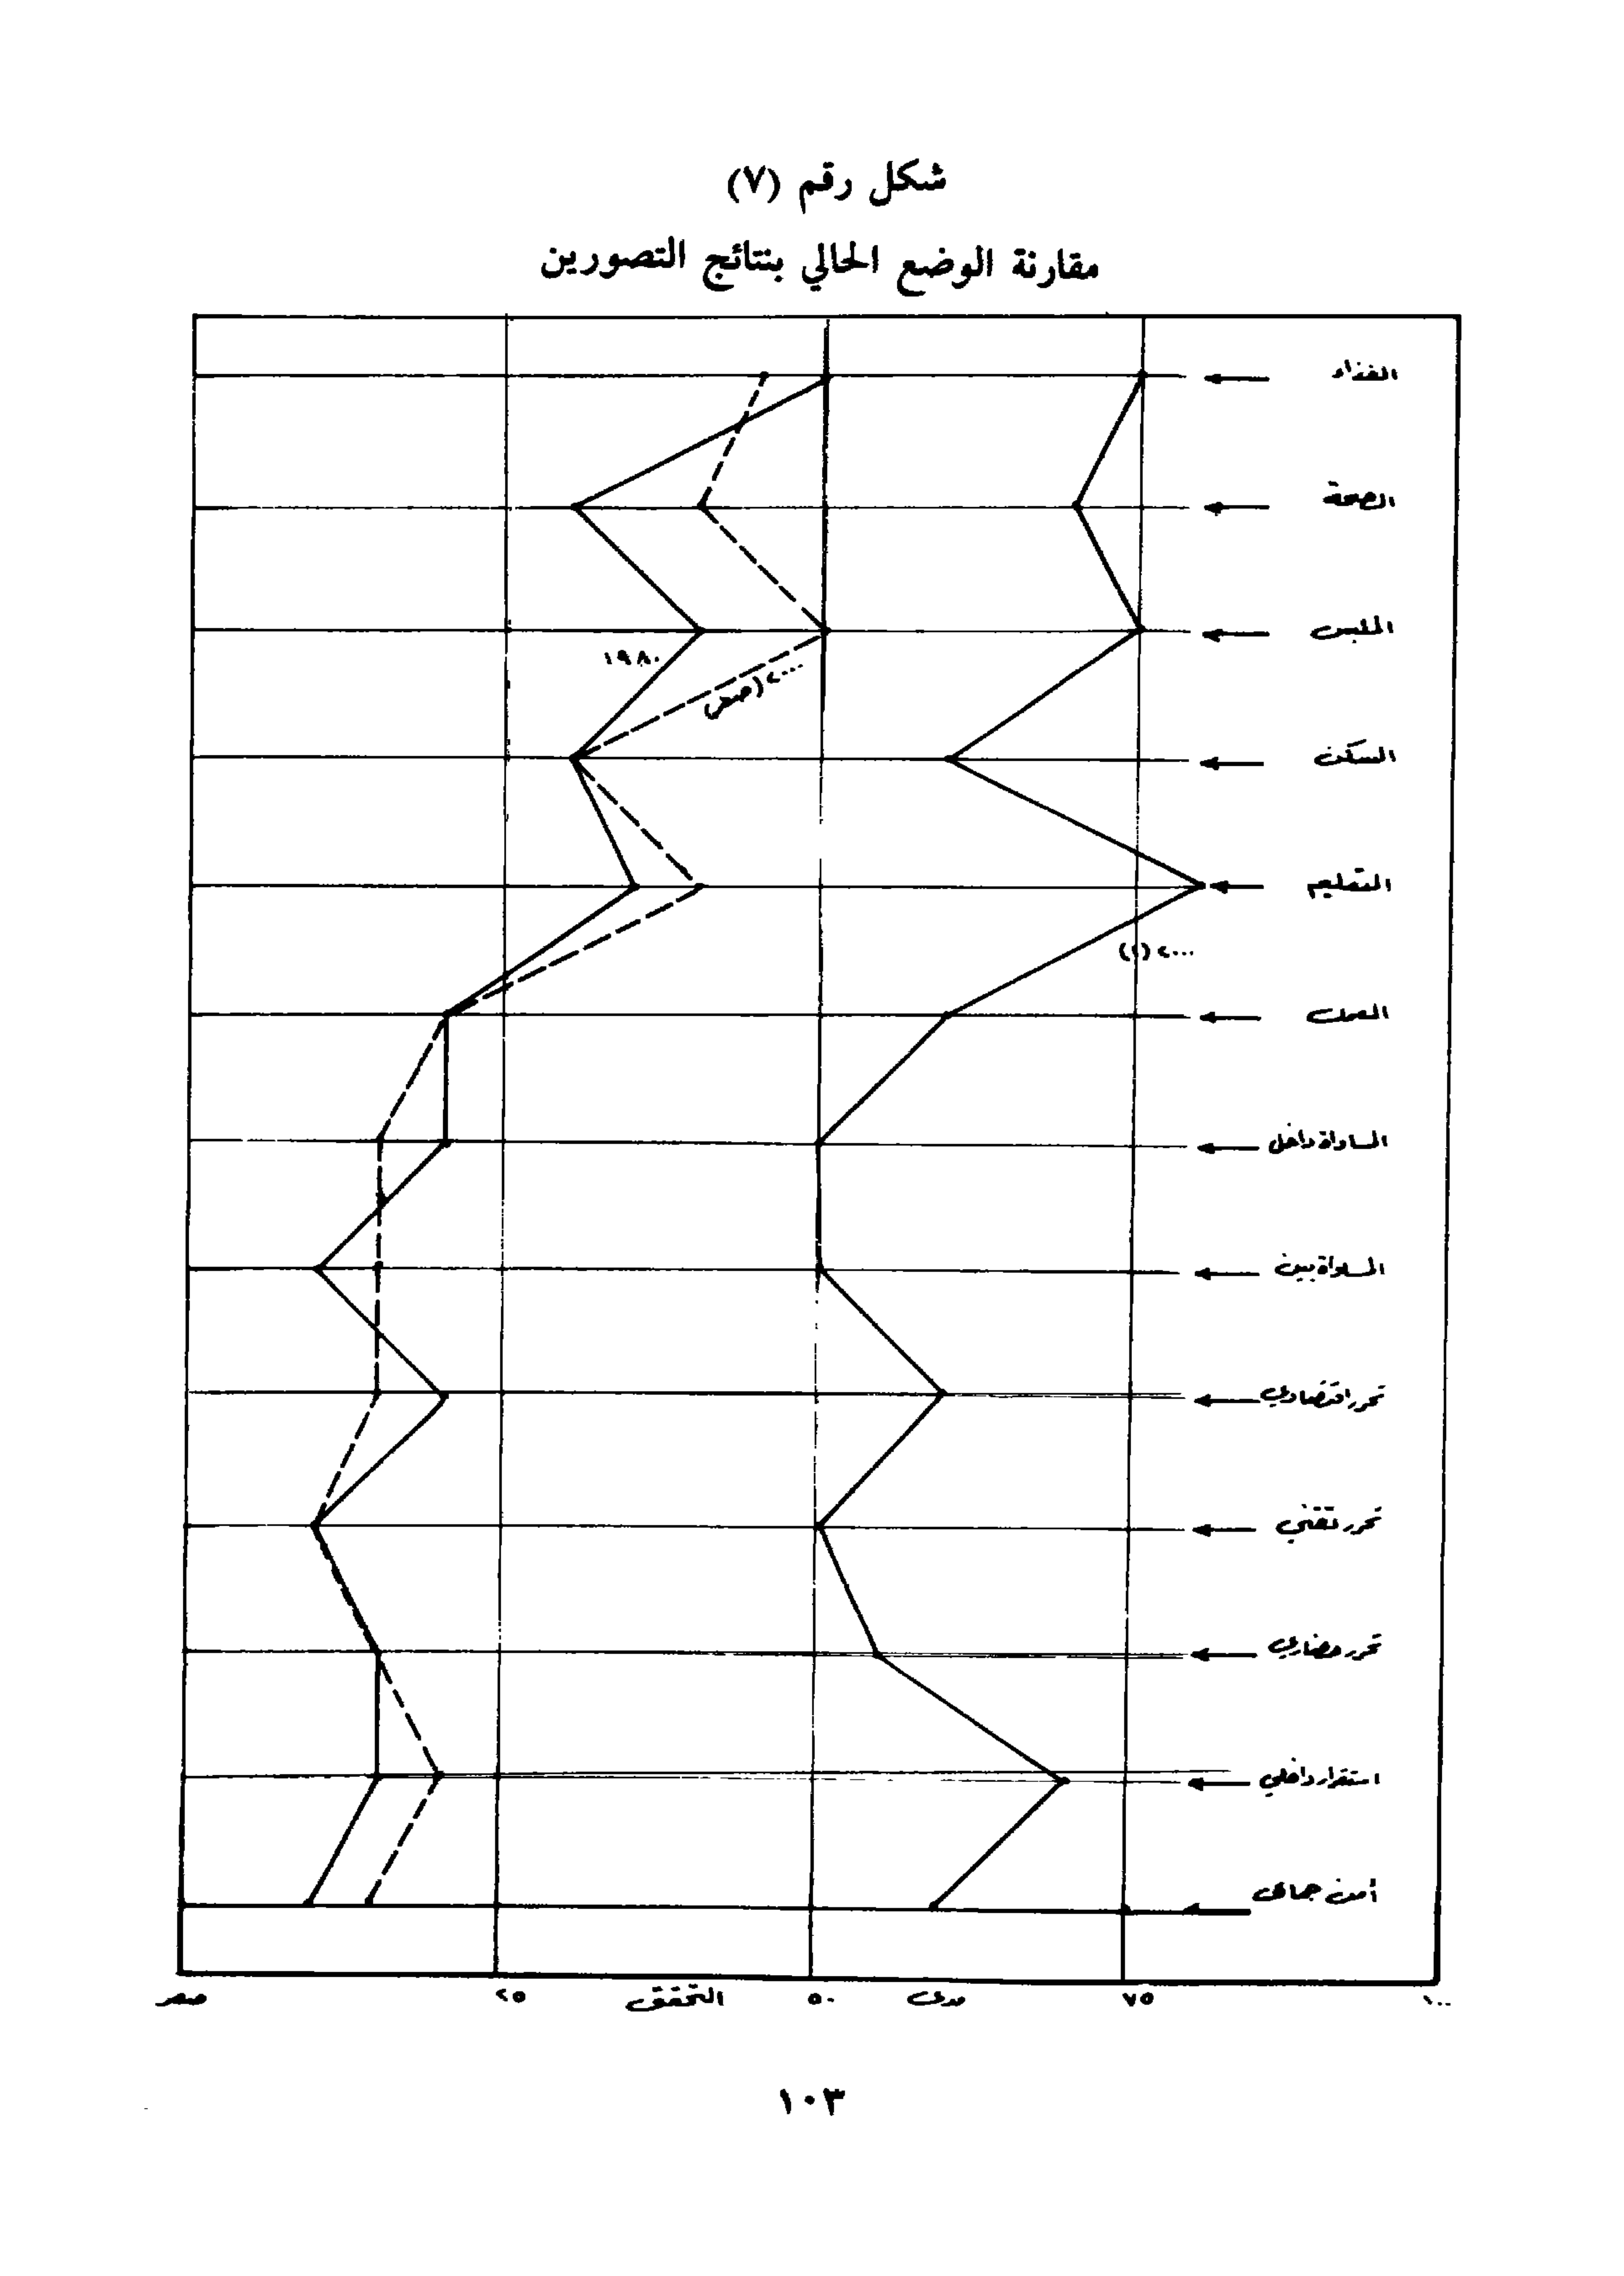 شكل رقم (٧)
مقارنة الوضع الحالي بنتائج التصورين
الغذاء
الصحة
الملبس
١٩٨٠
٢٠٠٠ (صفر)
السكن
التعليم
٢٠٠٠ (١)
العمل
المساواة داخل
المساواة بين
تحرر اقتصادي
تحرر تقني
تحرر حضاري
استقرار داخلي
أمن جماعي
صفر ٢٥ التحقق ٥٠ مدى ٧٥ ١٠٠
١٠٣